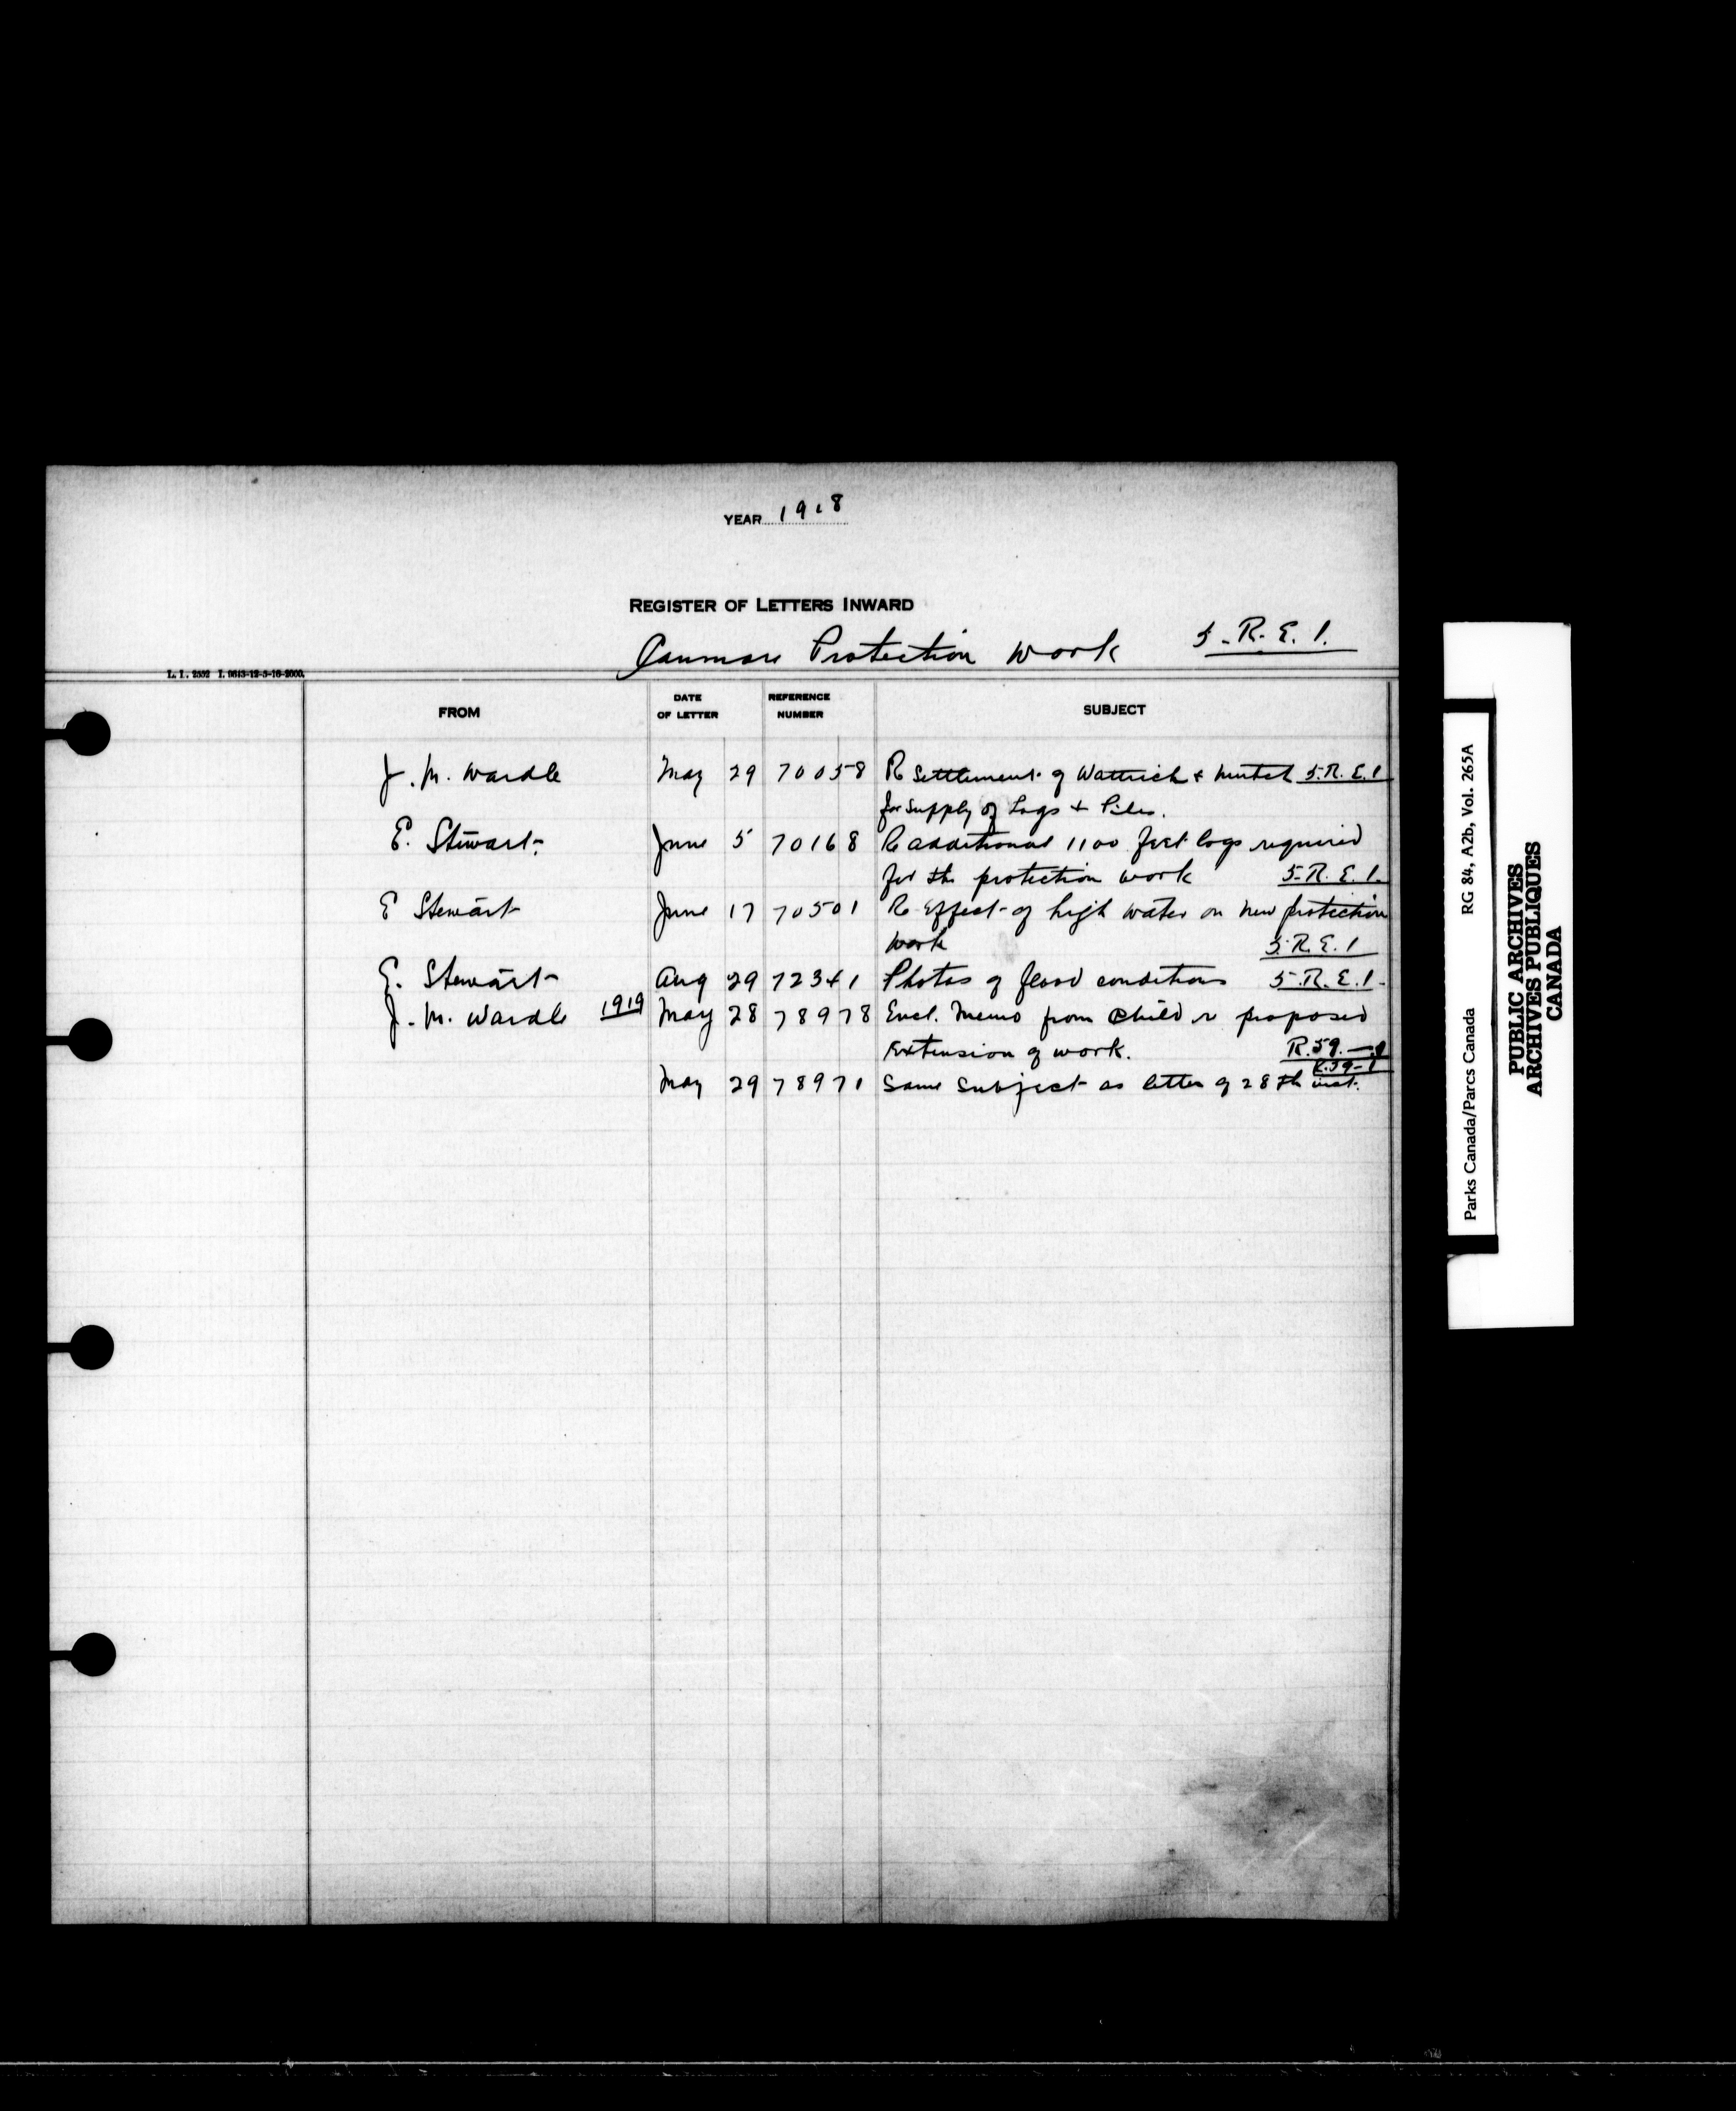 YEAR 1918
REGISTER OF LETTERS INWARD
Canmore Protection Work 5-R.E.1.
L. I. 2552 I. 9643-12-5-16-2000.
FROM DATE OF LETTER REFERENCE NUMBER SUBJECT
J. M. Wardle May 29 70058 Re Settlement of & 5.R.E.1
for supply of Logs + Piles.
E. Stewart June 5 70168 Re additional 1100 feet logs required
for the protection work 5-R.E.1.
E Stewart June 17 70501 Re Effect of high water on new protection
work 5.R.E.1
E. Stewart Aug 29 72341 Photos of flood conditions 5.R.E.1.
J. M. Wardle 1919 May 28 78978 Encl. Memo from Child re proposed
Extension of work. R.59.—1
R.59-1
May 29 78971 Same subject as letter of 28th inst.
Parks Canada/Parcs Canada RG 84, A2b, Vol. 265A
PUBLIC ARCHIVES
ARCHIVES PUBLIQUES
CANADA